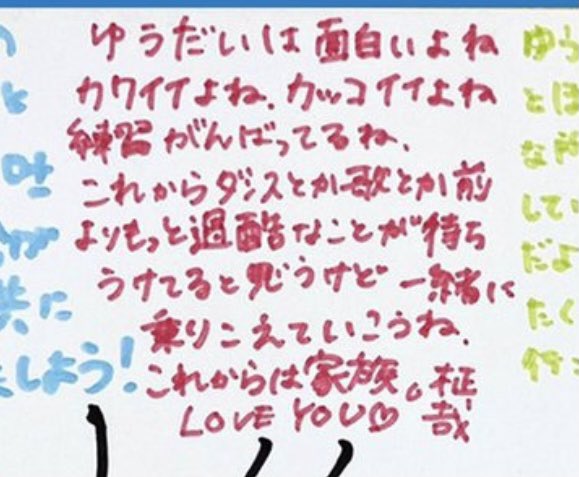 ゆうだいは面白いよね
カワイイよね、カッコイイよね
練習がんばってるね、
これからダンスとか歌とか前
よりもっと過酷なことが待ち
うけてると思うけど一緒に
乗りこえていこうね、
これからは家族。柾
LOVE YOU♡ 哉
と
吐
共に
しよう!
ゆう
とほ
な所
してい
だよ
たく
行っ